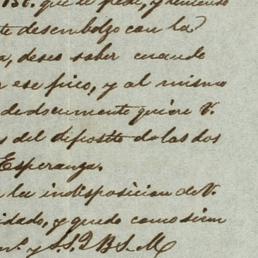 que le pedí, y
te desembolzo con la
a, deseo saber cuando
r ese pico, y al mismo
de documento quiere V.
s del deposito de las dos
Esperanza.
la indisposicion de V.
idado, y quedo como siem
y S.S.Q.B.S.M